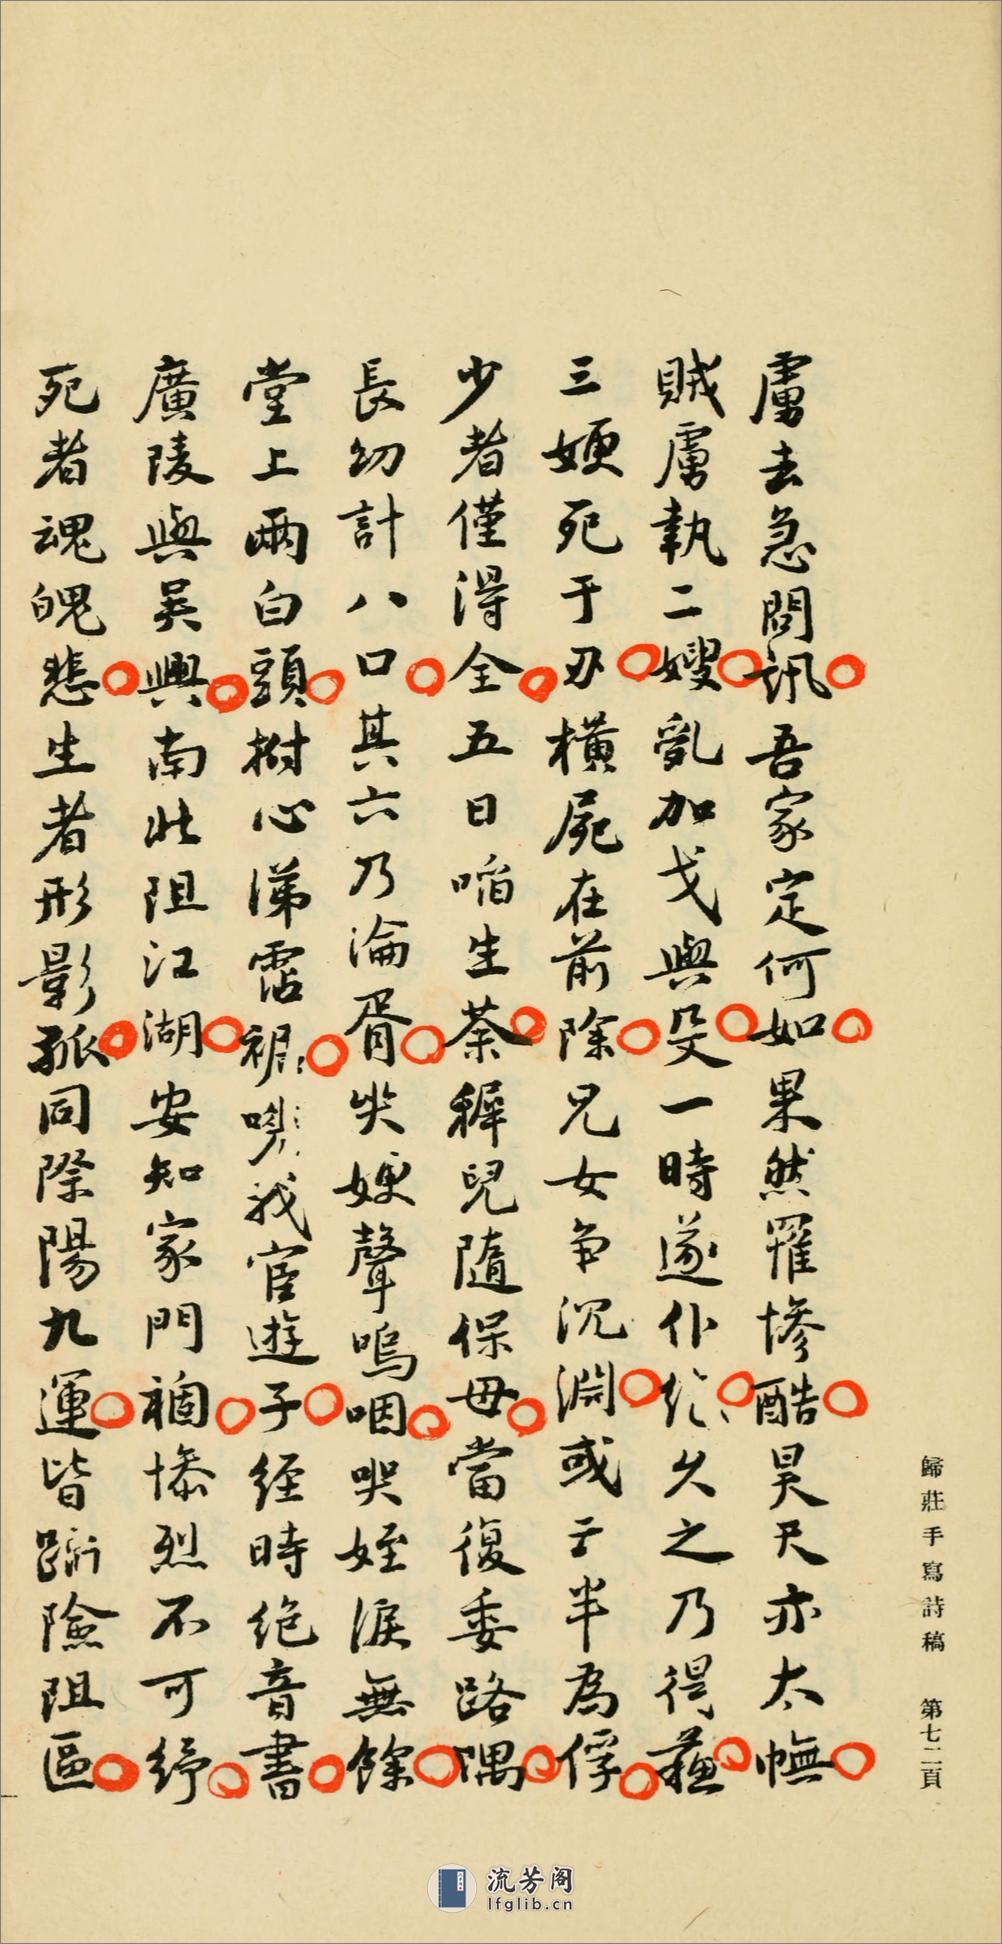 虜去急問訊吾家定何如果然罹慘酷昊天亦太幠
賊虜執二嫂亂加戈與殳一時遂仆絕久之乃得蘇
三嫂死于刃橫屍在前除兒女争沉淵或云半為俘
少者僅得全五日啗生荼稺兒隨保母當復委路隅
長幼計八口其六乃淪胥哭嫂聲嗚咽哭姪淚無餘
堂上兩白頭拊心涕霑裾嘆我宦遊子經時绝音書
廣陵與吳興南北阻江湖安知家門禍慘烈不可紓
死者魂魄悲生者形影孤同際陽九運皆蹈險阻區
歸莊手寫詩稿 第七二頁
流芳阁
lfglib.cn